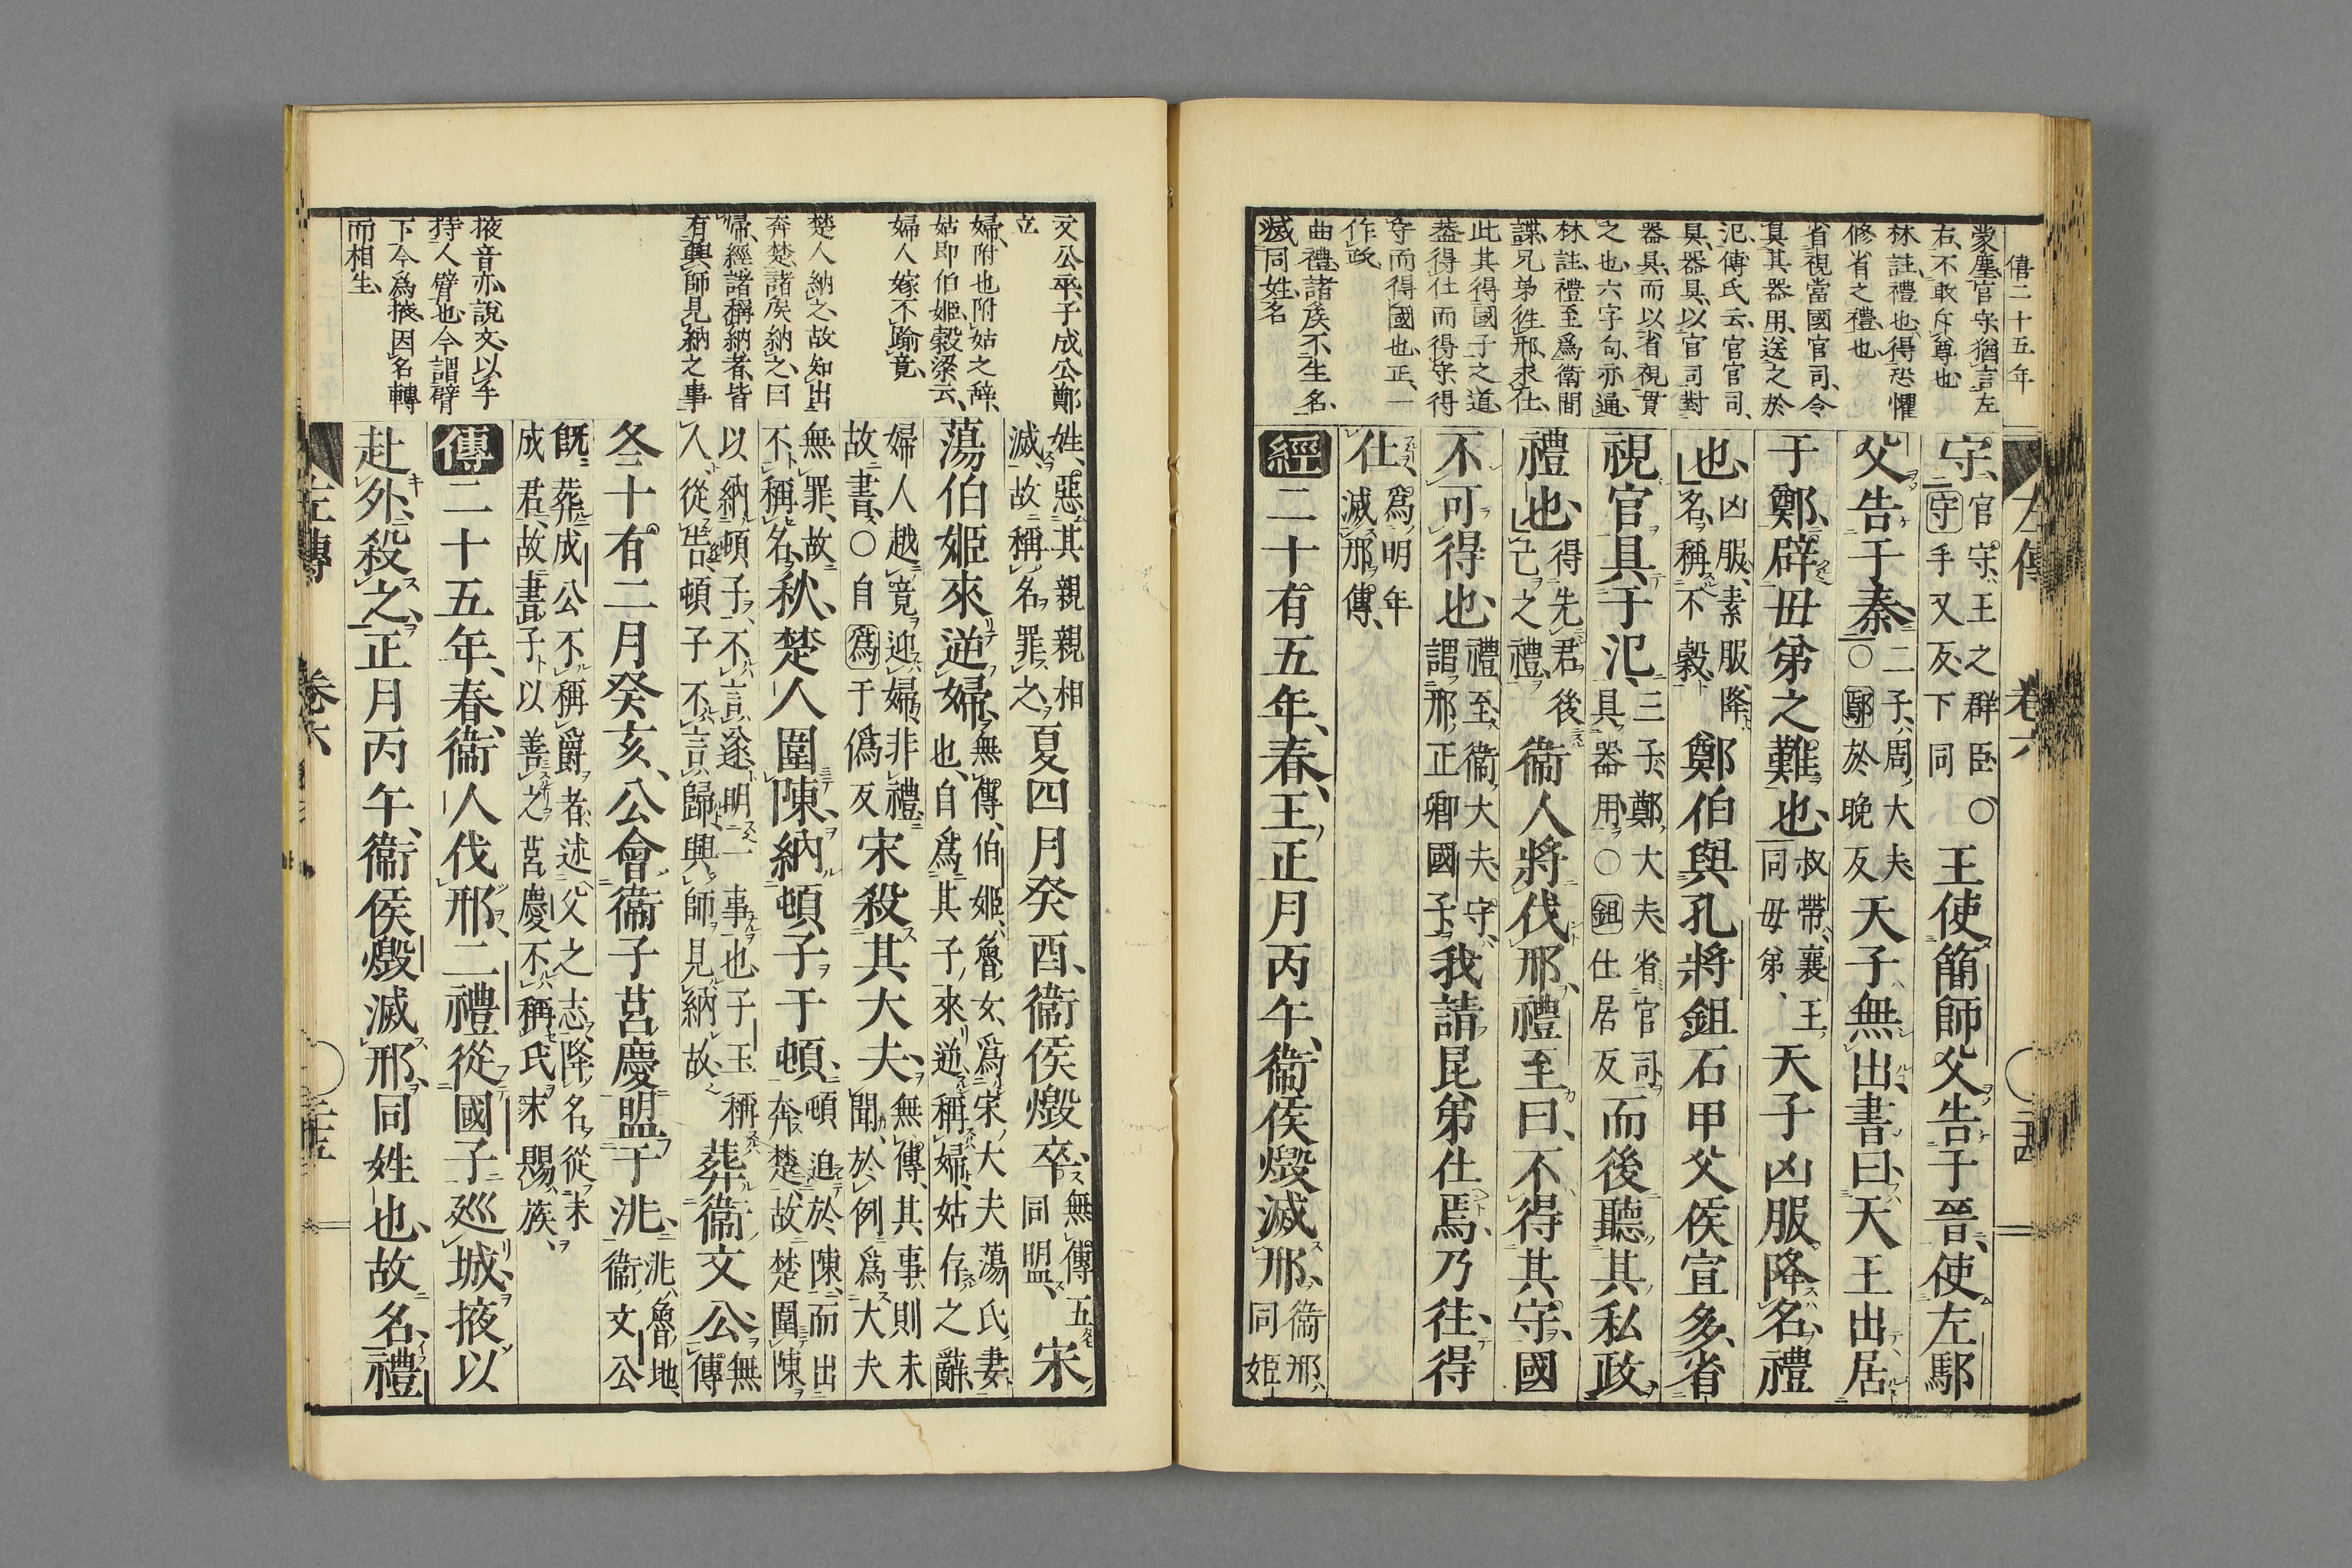 僖二十五年
蒙塵官守猶言左
右不敢斥尊也
林註禮也得恐懼
修省之禮也
省視當國官司令
具其器用送之於
氾傳氏云官官司
具器具以官司對
器具而以省視貫
之也六字句亦通
林註禮至爲衛間
諜兄弟徃邢求仕
此其得國子之道
葢得仕而得守得
守而得國也正一
作政
曲禮諸矦不生名
滅同姓名
守官守王之群臣○王使簡師父告于晉使左鄢
守手又反下同
父告于秦二子周大夫天子無出書曰天王出居
○鄢於晚反
于鄭辟毋弟之難也叔帶襄王天子凶服降名禮
同母弟
也凶服素服降鄭伯與孔將鉏石甲父侯宣多省
名稱不穀
視官具于氾三子鄭大夫省官司而後聽其私政
具器用○鉏仕居反
禮也得先君後衞人將伐邢禮至曰不得其守國
己之禮
不可得也禮至衞大夫守我請昆弟仕焉乃往得
謂邢正卿國子
仕爲明年
滅邢傳
經二十有五年春王正月丙午衞侯燬滅邢衞邢
同姫
左傳 卷六
文公卒子成公鄭
立
婦附也附姑之辭
姑即伯姬糓梁云
婦人嫁不踰竟
楚人納之故知出
奔楚諸矦納之曰
歸經諸稱納者皆
有興師見納之事
掖音亦說文以手
持人臂也今謂臂
下今爲掖因名轉
而相生
姓惡其親親相夏四月癸酉衞侯燬卒無傳五宋
滅故稱名罪之同盟
蕩伯姬來逆婦無傳伯姬魯女爲宋大夫蕩氏妻
也自爲其子來逆稱婦姑存之辭
婦人越竟迎婦非禮宋殺其大夫無傳其事則未
故書○自爲于僞反聞於例爲大夫
無罪故秋楚人圍陳納頓子于頓頓迫於陳而出
不稱名奔楚故楚圍陳
以納頓子不言遂明一事也子玉稱葬衞文公無
人從告頓子不言歸興師見納故傳
冬十有二月癸亥公會衞子莒慶盟于洮洮魯地
衞文公
既葬成公不稱爵者述父之志降名從未
成君故書子以善之莒慶不稱氏未賜族
傳二十五年春衞人伐邢二禮從國子巡城掖以
赴外殺之正月丙午衞侯燬滅邢同姓也故名禮
左傳 卷六